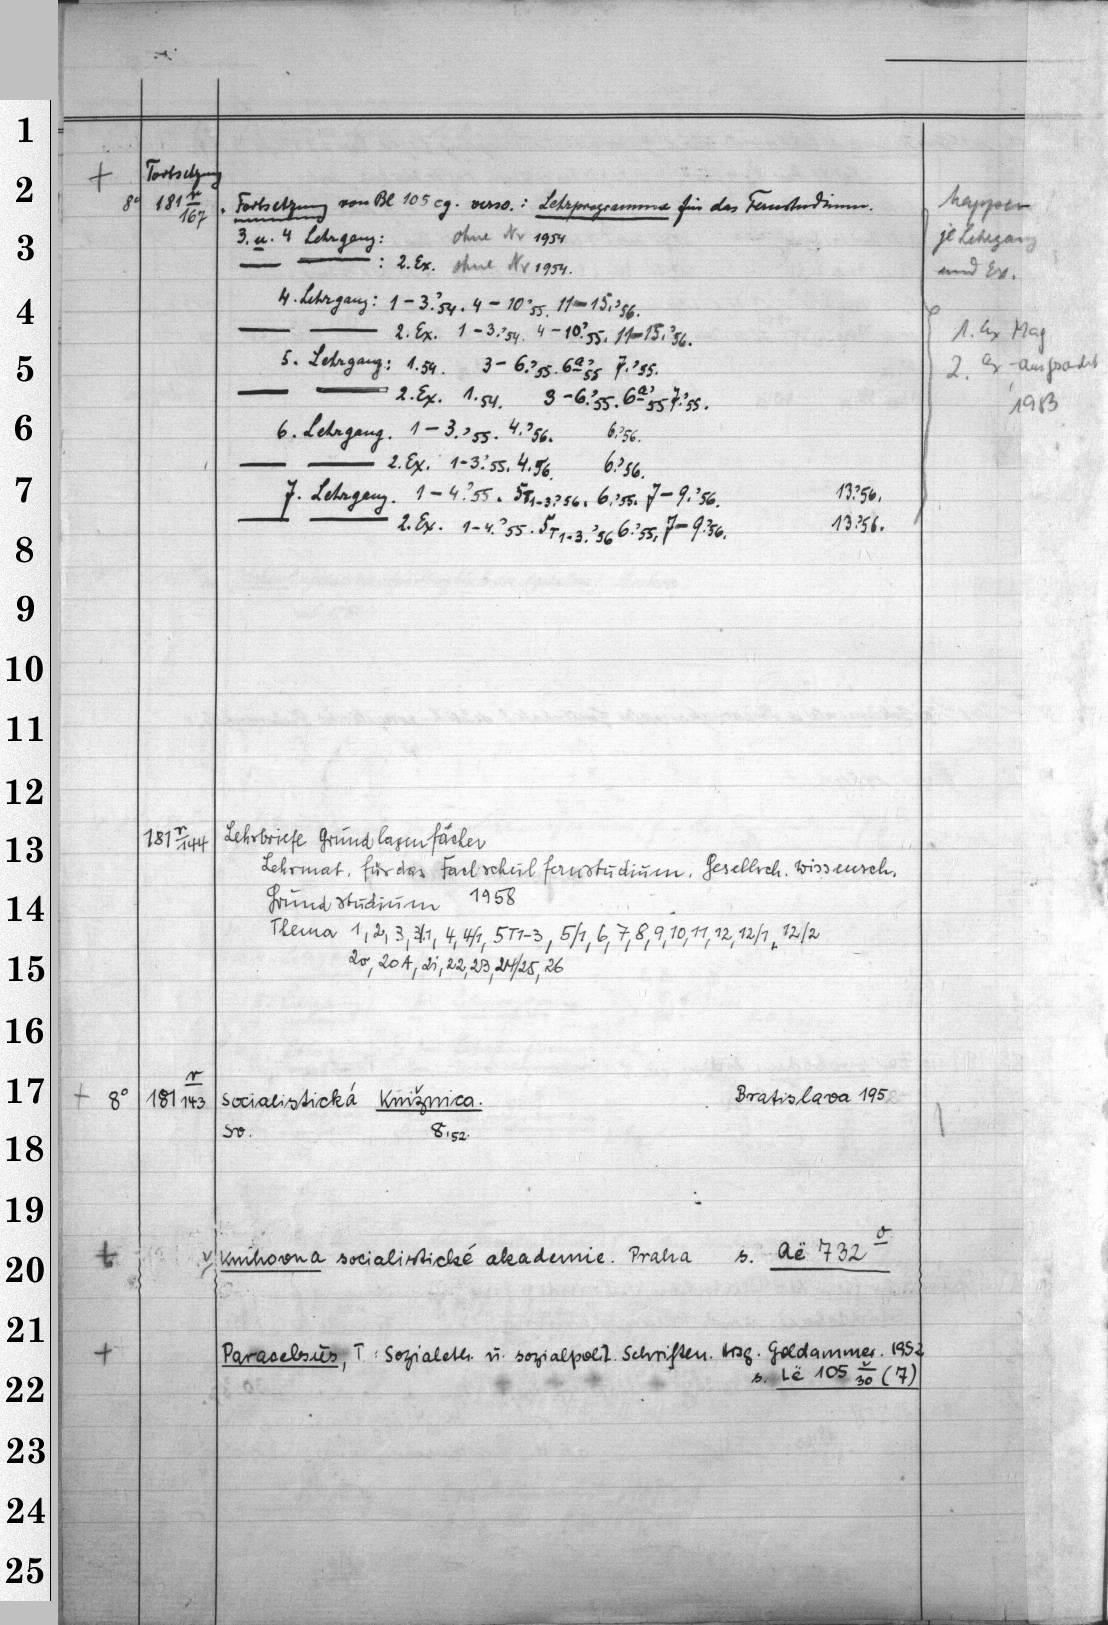 1
+ Fortsetzung
2
8° 181 v/167. Fortsetzung von Bl 105 cg. verso.: Lehrprogramme für das Fernstudium. Mappen
3. u. 4 Lehrgang: ohne Nr 1954 je Lehrgang
3
— — : 2. Ex. ohne Nr 1954. und Ex.
4. Lehrgang: 1-3.'54. 4-10'55. 11-15.'56.
4
— — 2. Ex. 1-3.'54. 4-10.'55. 11-15.'56. 1. Ex Mag
5. Lehrgang: 1.54. 3-6.'55. 6a'55 7.'55. 2. Ex
5
— — 2. Ex. 1.54. 3-6.'55. 6a'55 7.'55. 1983
6
6. Lehrgang. 1-3.'55. 4.'56. 6.'56.
— — 2. Ex. 1-3.'55. 4.56. 6.'56.
7
7. Lehrgang. 1-4.'55. 5T1-3.'56. 6.'55. 7-9.'56. 13.'56.
— — 2. Ex. 1-4.'55. 5T1-3.'56 6.'55. 7-9.'56. 13.'56.
8
9
10
11
12
181 v/144 Lehrbriefe Grundlagenfächer
13
Lehrmat. für das Fachschulfernstudium. Gesellsch. wissensch.
14
Grundstudium 1958
Thema 1, 2, 3, 3/1, 4, 4/1, 5T1-3, 5/1, 6, 7, 8, 9, 10, 11, 12, 12/1, 12/2
15
20, 20A, 21, 22, 23, 24/25, 26
16
17
+ 8° 181 v/143 Socialistická Knižnica. Bratislava 195
So. 8.52.
18
19
20
+ Knihovna socialistické akademie. Praha s. Aë 732 o
21
+ Paracelsus, T: Sozialeth. u. sozialpolit. Schriften. Hrsg. Goldammer. 1952
22
s. Lë 105 v/30 (7)
23
24
25